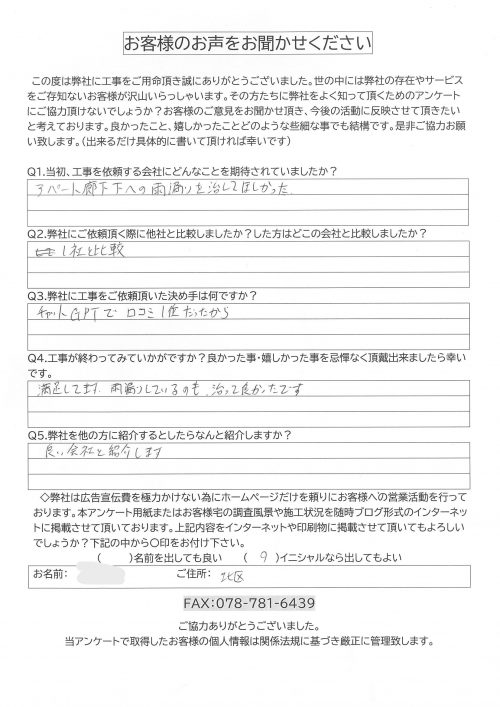 お客様のお声をお聞かせください
この度は弊社に工事をご用命頂き誠にありがとうございました。世の中には弊社の存在やサービス
をご存知ないお客様が沢山いらっしゃいます。その方たちに弊社をよく知って頂くためのアンケート
にご協力頂けないでしょうか？お客様のご意見をお聞かせ頂き、今後の活動に反映させて頂きたい
と考えております。良かったこと、嬉しかったことどのような些細な事でも結構です。是非ご協力お願
い致します。（出来るだけ具体的に書いて頂ければ幸いです）
Q1.当初、工事を依頼する会社にどんなことを期待されていましたか？
アパート廊下下への雨漏りを治してほしかった
Q2.弊社にご依頼頂く際に他社と比較しましたか？した方はどこの会社と比較しましたか？
1社と比較
Q3.弊社に工事をご依頼頂いた決め手は何ですか？
チャットGPTで口コミ1位だったから
Q4.工事が終わってみていかがですか？良かった事・嬉しかった事を忌憚なく頂戴出来ましたら幸い
です。
満足してます。雨漏りしているのも、治って良かったです
Q5.弊社を他の方に紹介するとしたらなんと紹介しますか？
良い会社と紹介します
◇弊社は広告宣伝費を極力かけない為にホームページだけを頼りにお客様への営業活動を行って
おります。本アンケート用紙またはお客様宅の調査風景や施工状況を随時ブログ形式のインターネッ
トに掲載させて頂いております。上記内容をインターネットや印刷物に掲載させて頂いてもよろしい
でしょうか？下記の中から〇印をお付け下さい。
（　　）名前を出しても良い　（　　）イニシャルなら出してもよい
お名前：　ご住所：　北区
FAX：078-781-6439
ご協力ありがとうございました。
当アンケートで取得したお客様の個人情報は関係法規に基づき厳正に管理致します。